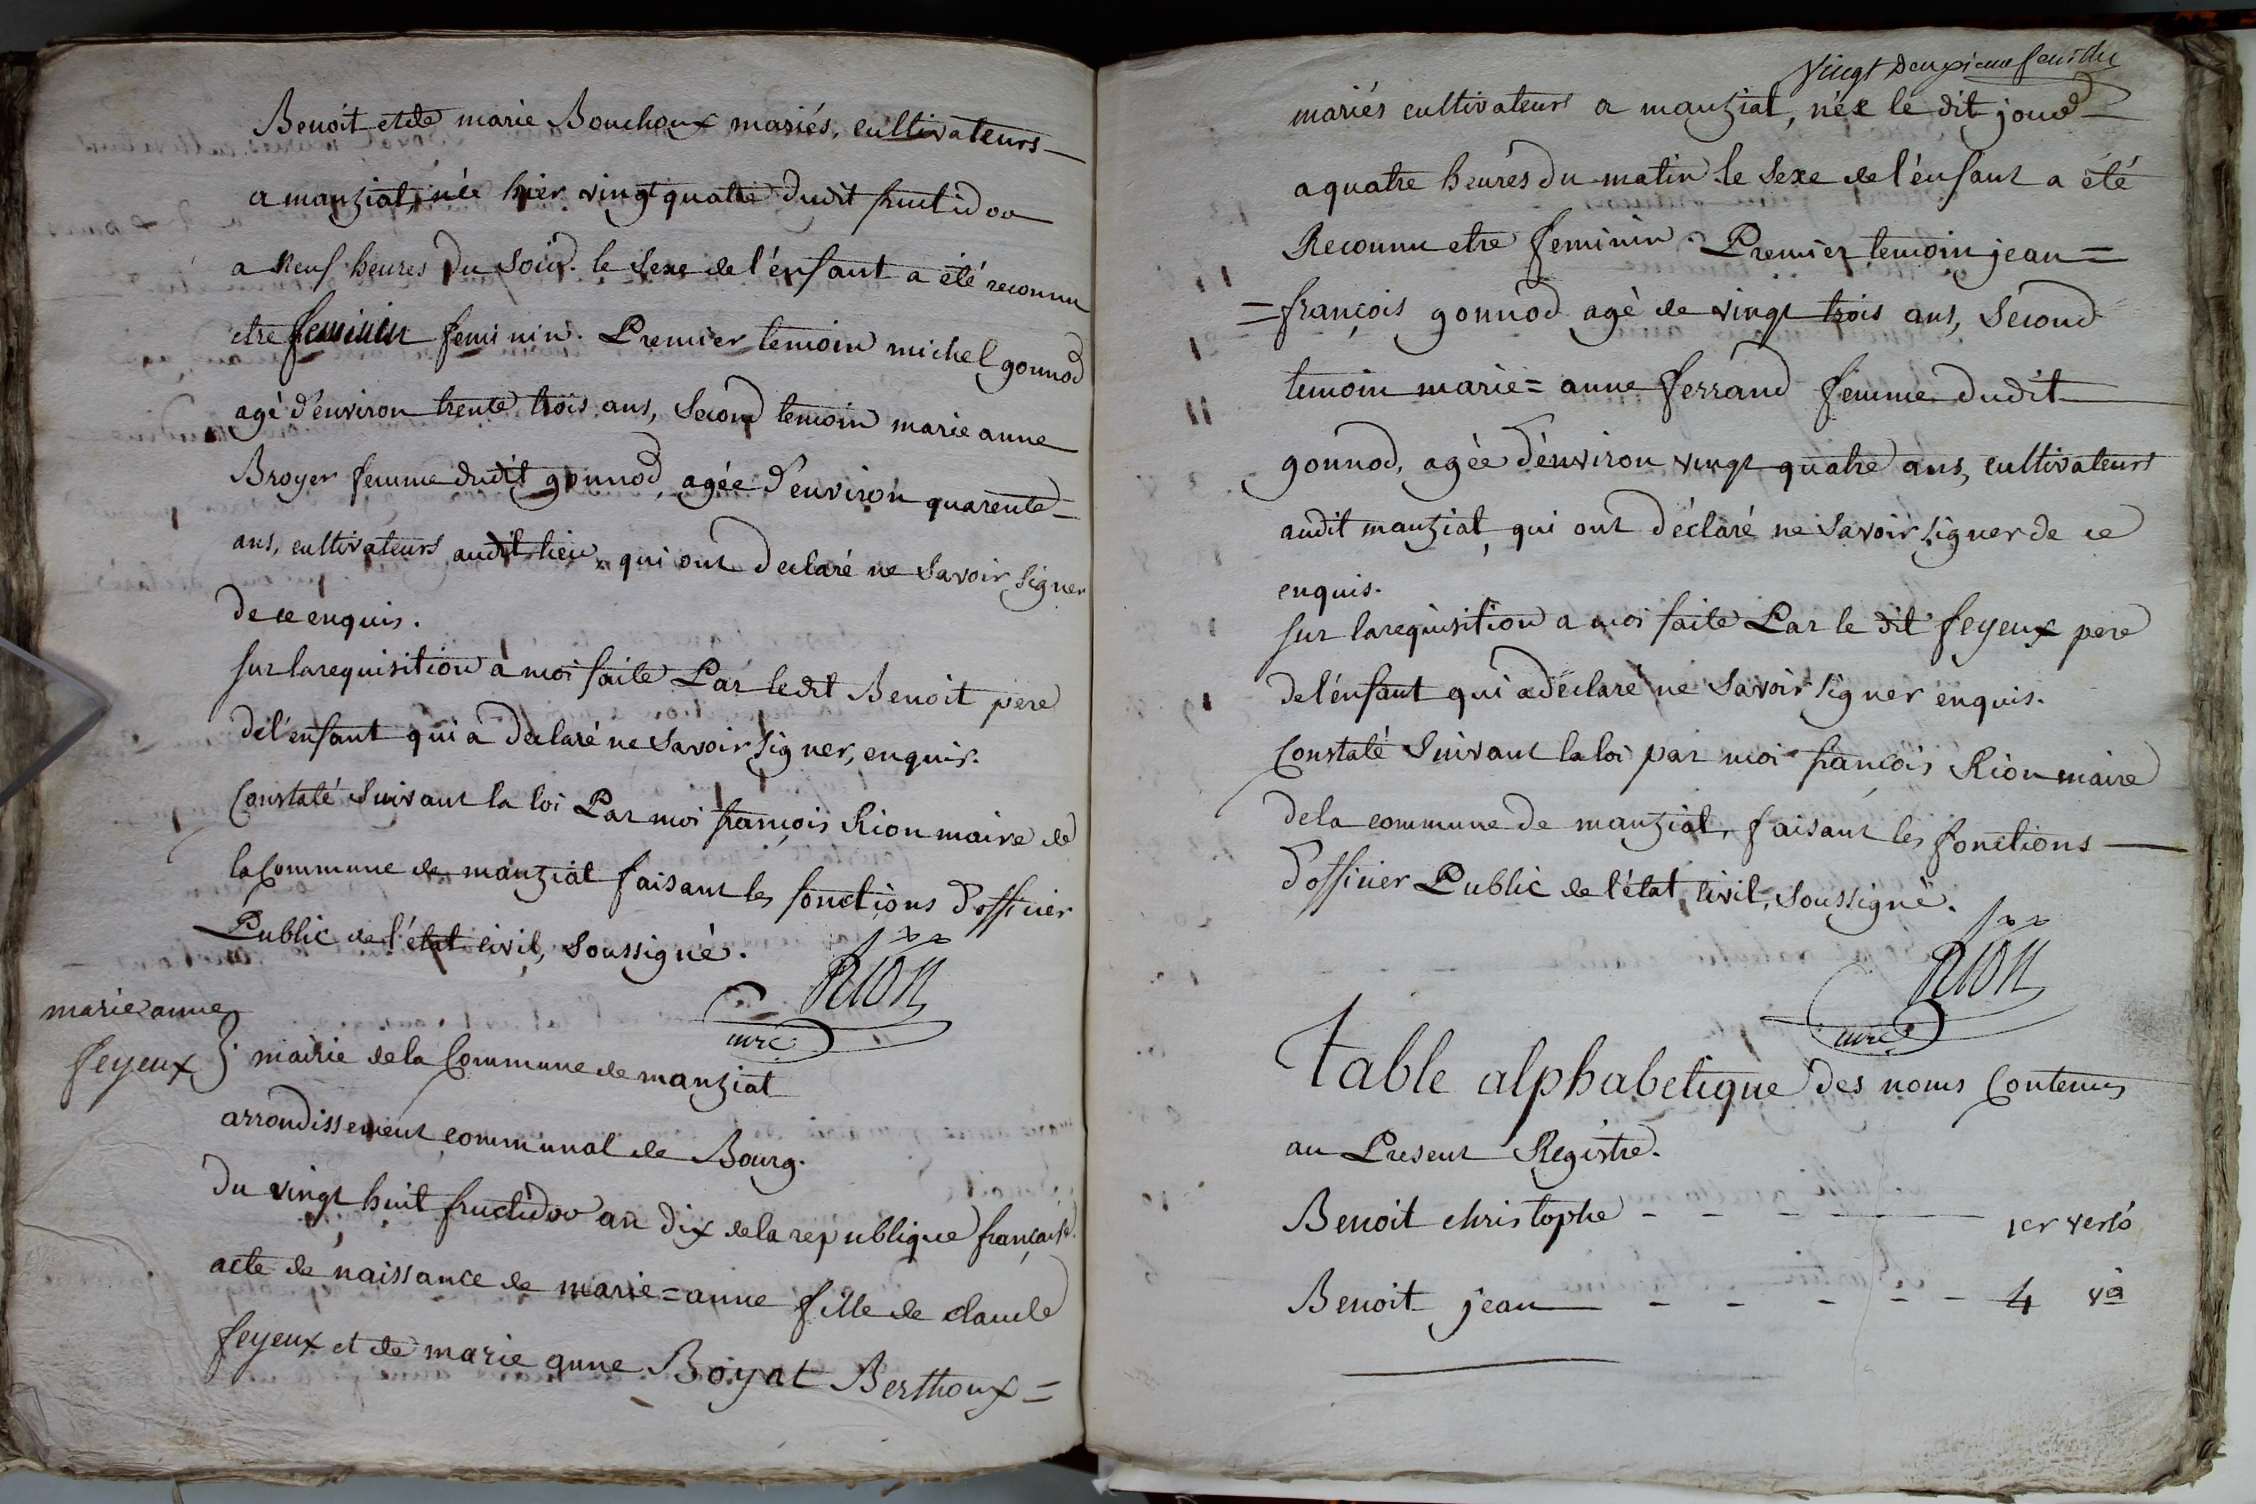 Benoit et de marie Bouchoux mariés, cultivateurs
a manziat, née hier vingt quatre dudit fructidor
a neuf heures du soir. le sexe de l'énfant a été reconnu
etre feminin feminin. Premier temoin michel gonnod
agé d'environ trente trois ans, Second temoin marie anne
Broyer femme dudit gonnod, agée d'environ quarente
ans, cultivateurs audit lieu, qui ont declaré ne Savoir signer
de ce enquis.
sur la requisition à moi faite Par ledit Benoit pere
de l'enfant qui a declaré ne Savoir signer, enquis.
Constaté Suivant la loi Par moi françois Rion maire de
la Commune de manziat faisant les fonctions d'officier
Public de l'état civil, Soussigné.
Rion
mre
marie anne
feyeux
mairie de la Commune de manziat
arrondissement communal de Bourg.
Du vingt huit fructidor an dix de la republique française.
acte de naissance de marie=anne fille de claude
feyeux et de marie anne Boyat Berthoux=
Vingt deuxieme feuillet
mariés cultivateurs a manziat, née le dit jour
a quatre heures du matin le Sexe de l'énfant a été
Reconnu etre feminin. Premier temoin jean=
=françois gonnod agé de vingt trois ans, Second
temoin marie=anne ferrand femme dudit
gonnod, agée d'énviron vingt quatre ans, cultivateurs
audit manziat, qui ont déclaré ne Savoir signer de ce
enquis.
sur la requisition a moi faite Par le dit feyeux pere
de l'énfant qui a declaré ne Savoir signer enquis.
Constaté Suivant la loi par moi françois Rion maire
de la commune de manziat, faisant les fonctions
d'officier Public de l'état civil, Soussigné.
Rion
mre
Table alphabetique des noms Contenus
au Present Registre.
Benoit christophe - - - - - 1er verso
Benoit jean - - - - - 4 vo